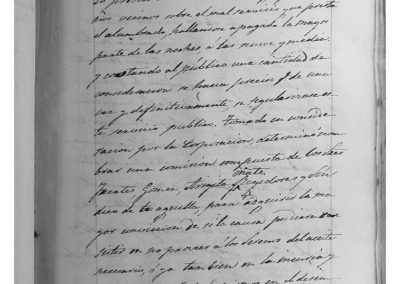 nos vecinos sobre el mal servicio que presta
el alumbrado, hallandose apagado la mayor
parte de las noches á las nueve y media,
y costando al público una cantidad de
consideracion se hacia preciso q.e de una
vez y definitivamente se regularizase es-
te servicio publico. Tomada en conside-
racion por la Corporacion, determinó nom-
brar una comision compuesta de los Sres
Fuentes, Gomez, Regidores y Sin-
dico de ta aquella, para adquirir la ma-
yor conviccion de si la causa pudiera con-
sistir en no proveer á los Serenos del aceite
necesario, ó ya tambien en la incuria y